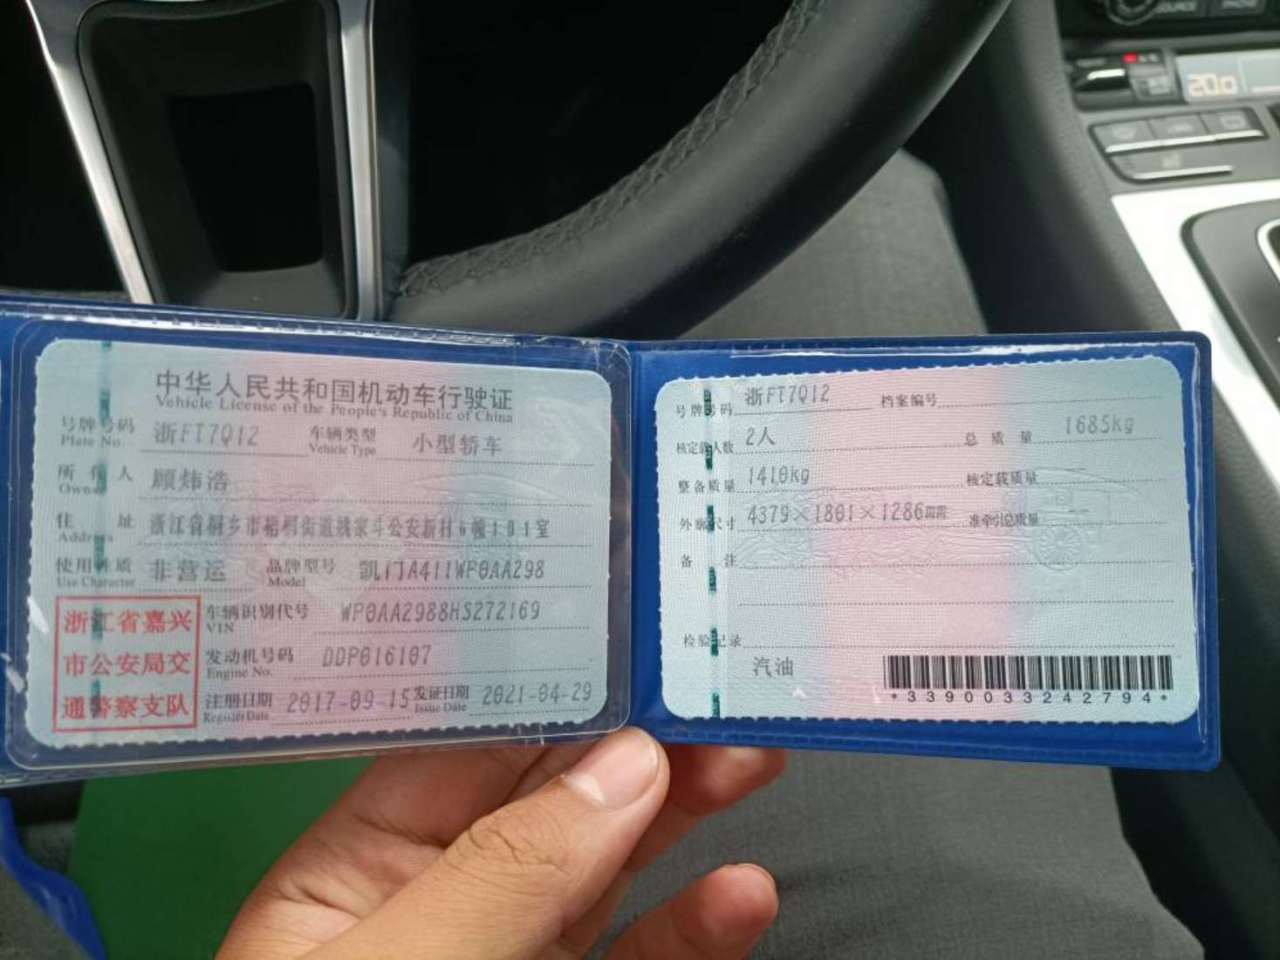 中华人民共和国机动车行驶证
Vehicle License of the People's Republic of China
号牌号码 浙FT7Q12 车辆类型 小型轿车
Plate No. Vehicle Type
所有人 顾炜浩
Owner
住址 浙江省桐乡市梧桐街道姚家斗公安新村6幢101室
Address
使用性质 非营运 品牌型号 凯门A411WP0AA298
Use Character Model
浙江省嘉兴
市公安局交
通警察支队
车辆识别代号 WP0AA2988HS272169
VIN
发动机号码 DDP016107
Engine No.
注册日期 2017-09-15 发证日期 2021-04-29
Register Date Issue Date
号牌号码 浙FT7Q12 档案编号
核定载人数 2人 总质量 1685kg
整备质量 1410kg 核定载质量 --
外廓尺寸 4379×1801×1286 准牵引总质量 --
备注
检验记录
汽油
*3390033242794*
20.0